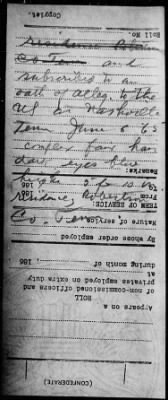 Copyist.
Roll No.
residence
Co Tenn and
subscribes to an
oath of alleg. to the
US at Nashville
Tenn June 6 63
complex fair hair
dark eyes blue
Remarks:
186
hight 5 f 10
From
TERM OF SERVICE:
residence Robertson
Co. Tenn
Nature of service, &c.
By whose order employed
during month of , 186 .
at
privates employed on extra duty
of non-commissioned officers and
ROLL
Appears on a
(CONFEDERATE)